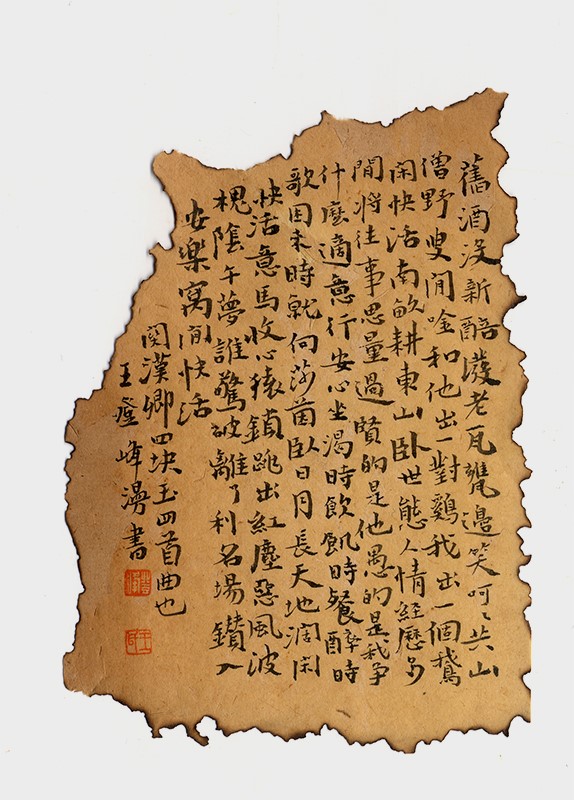 舊酒沒新醅潑老瓦甕邊笑呵〻共山
僧野叟閒唫和他出一對鷄我出一個鵝
閑快活南畝耕東山臥世態人情經歷多
閒將往事思量過賢的是他愚的是我爭
什麼適意行安心坐渴時飲飢時餐醉時
歌困來時就向莎茵臥日月長天地濶閑
快活意馬收心猿鎖跳出紅塵惡風波
槐陰午夢誰驚破離了利名場鑽入
安樂窩閒快活
関漢卿四块玉四首曲也
王登峰漫書